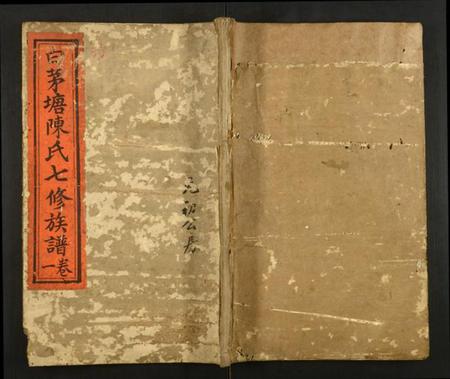 白茅塘陳氏七修族譜
卷一
元祖公房